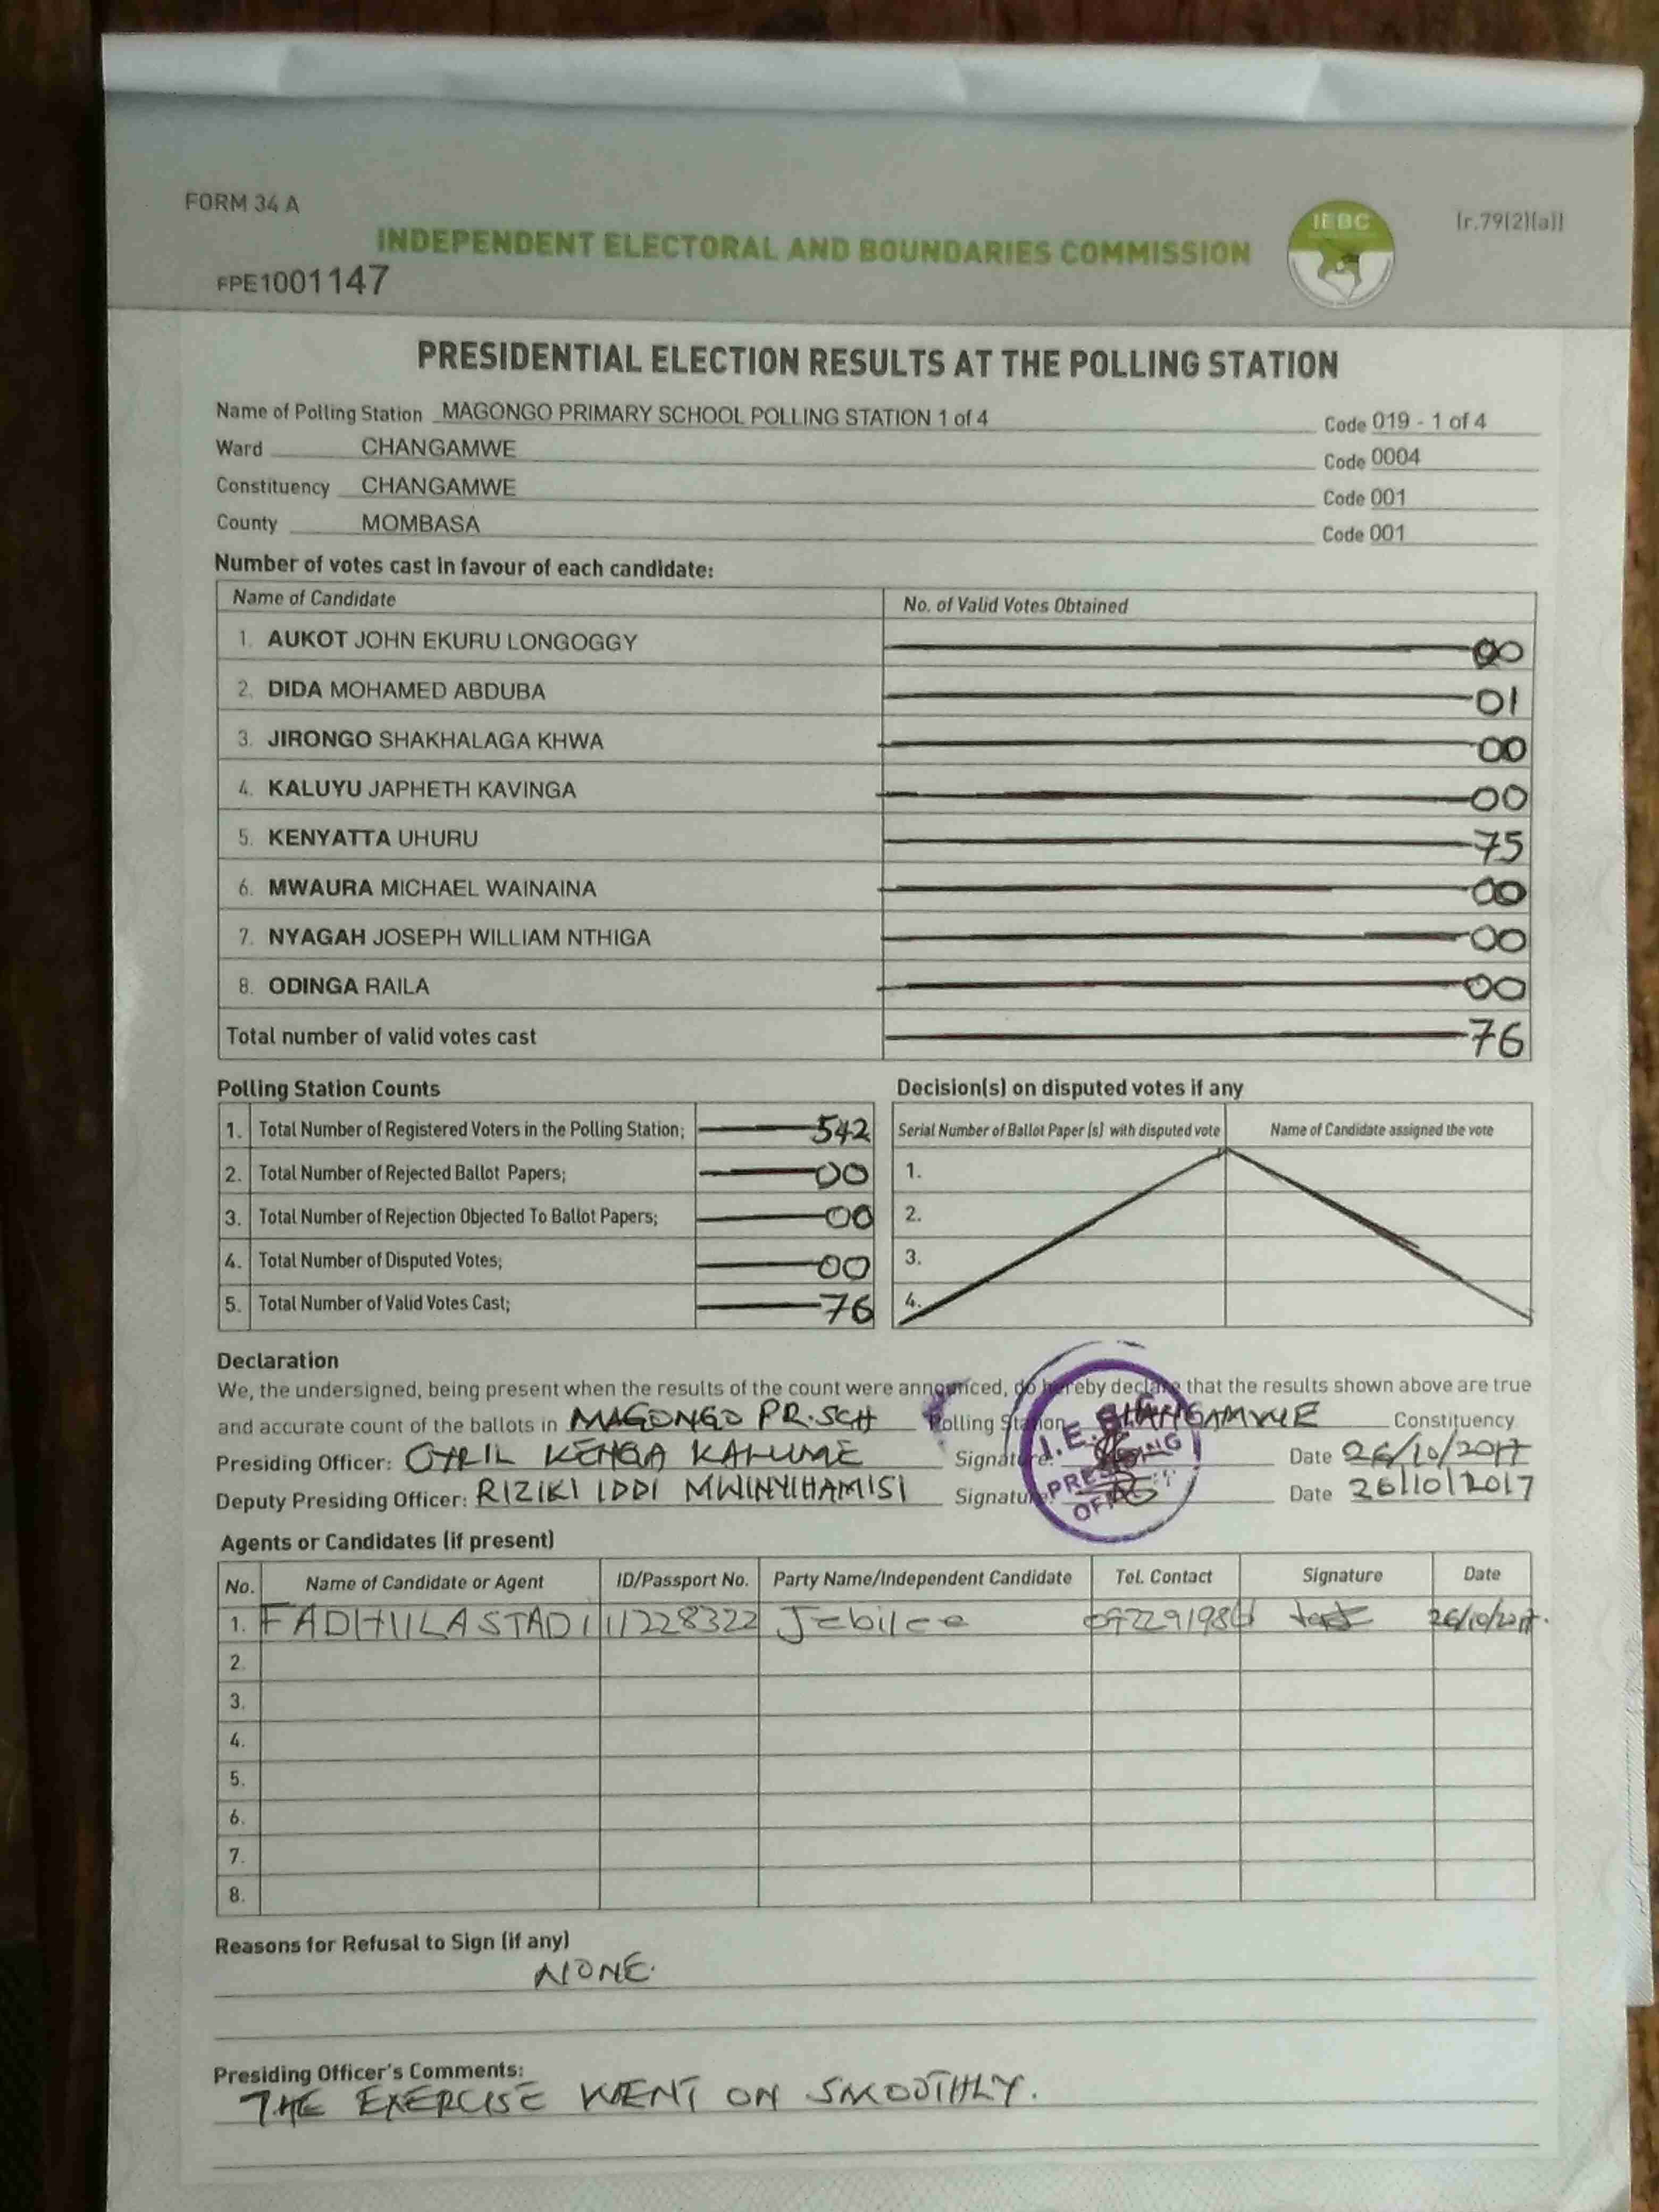 FORM 34 A
IEBC
[r.79(2)(a)]
INDEPENDENT ELECTORAL AND BOUNDARIES COMMISSION
FPE1001147
PRESIDENTIAL ELECTION RESULTS AT THE POLLING STATION
Name of Polling Station MAGONGO PRIMARY SCHOOL POLLING STATION 1 of 4 Code 019 - 1 of 4
Ward CHANGAMWE Code 0004
Constituency CHANGAMWE Code 001
County MOMBASA Code 001
Number of votes cast in favour of each candidate:
Name of Candidate No. of Valid Votes Obtained
1. AUKOT JOHN EKURU LONGOGGY 00
2. DIDA MOHAMED ABDUBA 01
3. JIRONGO SHAKHALAGA KHWA 00
4. KALUYU JAPHETH KAVINGA 00
5. KENYATTA UHURU 75
6. MWAURA MICHAEL WAINAINA 00
7. NYAGAH JOSEPH WILLIAM NTHIGA 00
8. ODINGA RAILA 00
Total number of valid votes cast 76
Polling Station Counts
1. Total Number of Registered Voters in the Polling Station; 542
2. Total Number of Rejected Ballot Papers; 00
3. Total Number of Rejection Objected To Ballot Papers; 00
4. Total Number of Disputed Votes; 00
5. Total Number of Valid Votes Cast; 76
Decision(s) on disputed votes if any
Serial Number of Ballot Paper (s) with disputed vote Name of Candidate assigned the vote
1.
2.
3.
4.
Declaration
We, the undersigned, being present when the results of the count were announced, do hereby declare that the results shown above are true
and accurate count of the ballots in MAGONGO PR.SCH Polling Station CHANGAMWE Constituency
Presiding Officer: CYRIL KENGA KALUME Signature: Date 26/10/2017
Deputy Presiding Officer: RIZIKI IDDI MWINYIHAMISI Signature: Date 26/10/2017
I.E.B.C
PRESIDING
OFFICER
Agents or Candidates (if present)
No. Name of Candidate or Agent ID/Passport No. Party Name/Independent Candidate Tel. Contact Signature Date
1. FADHILA STADI 11228322 26/10/2017.
2.
3.
4.
5.
6.
7.
8.
Reasons for Refusal to Sign (if any)
NONE.
Presiding Officer's Comments:
THE EXERCISE WENT ON SMOOTHLY.